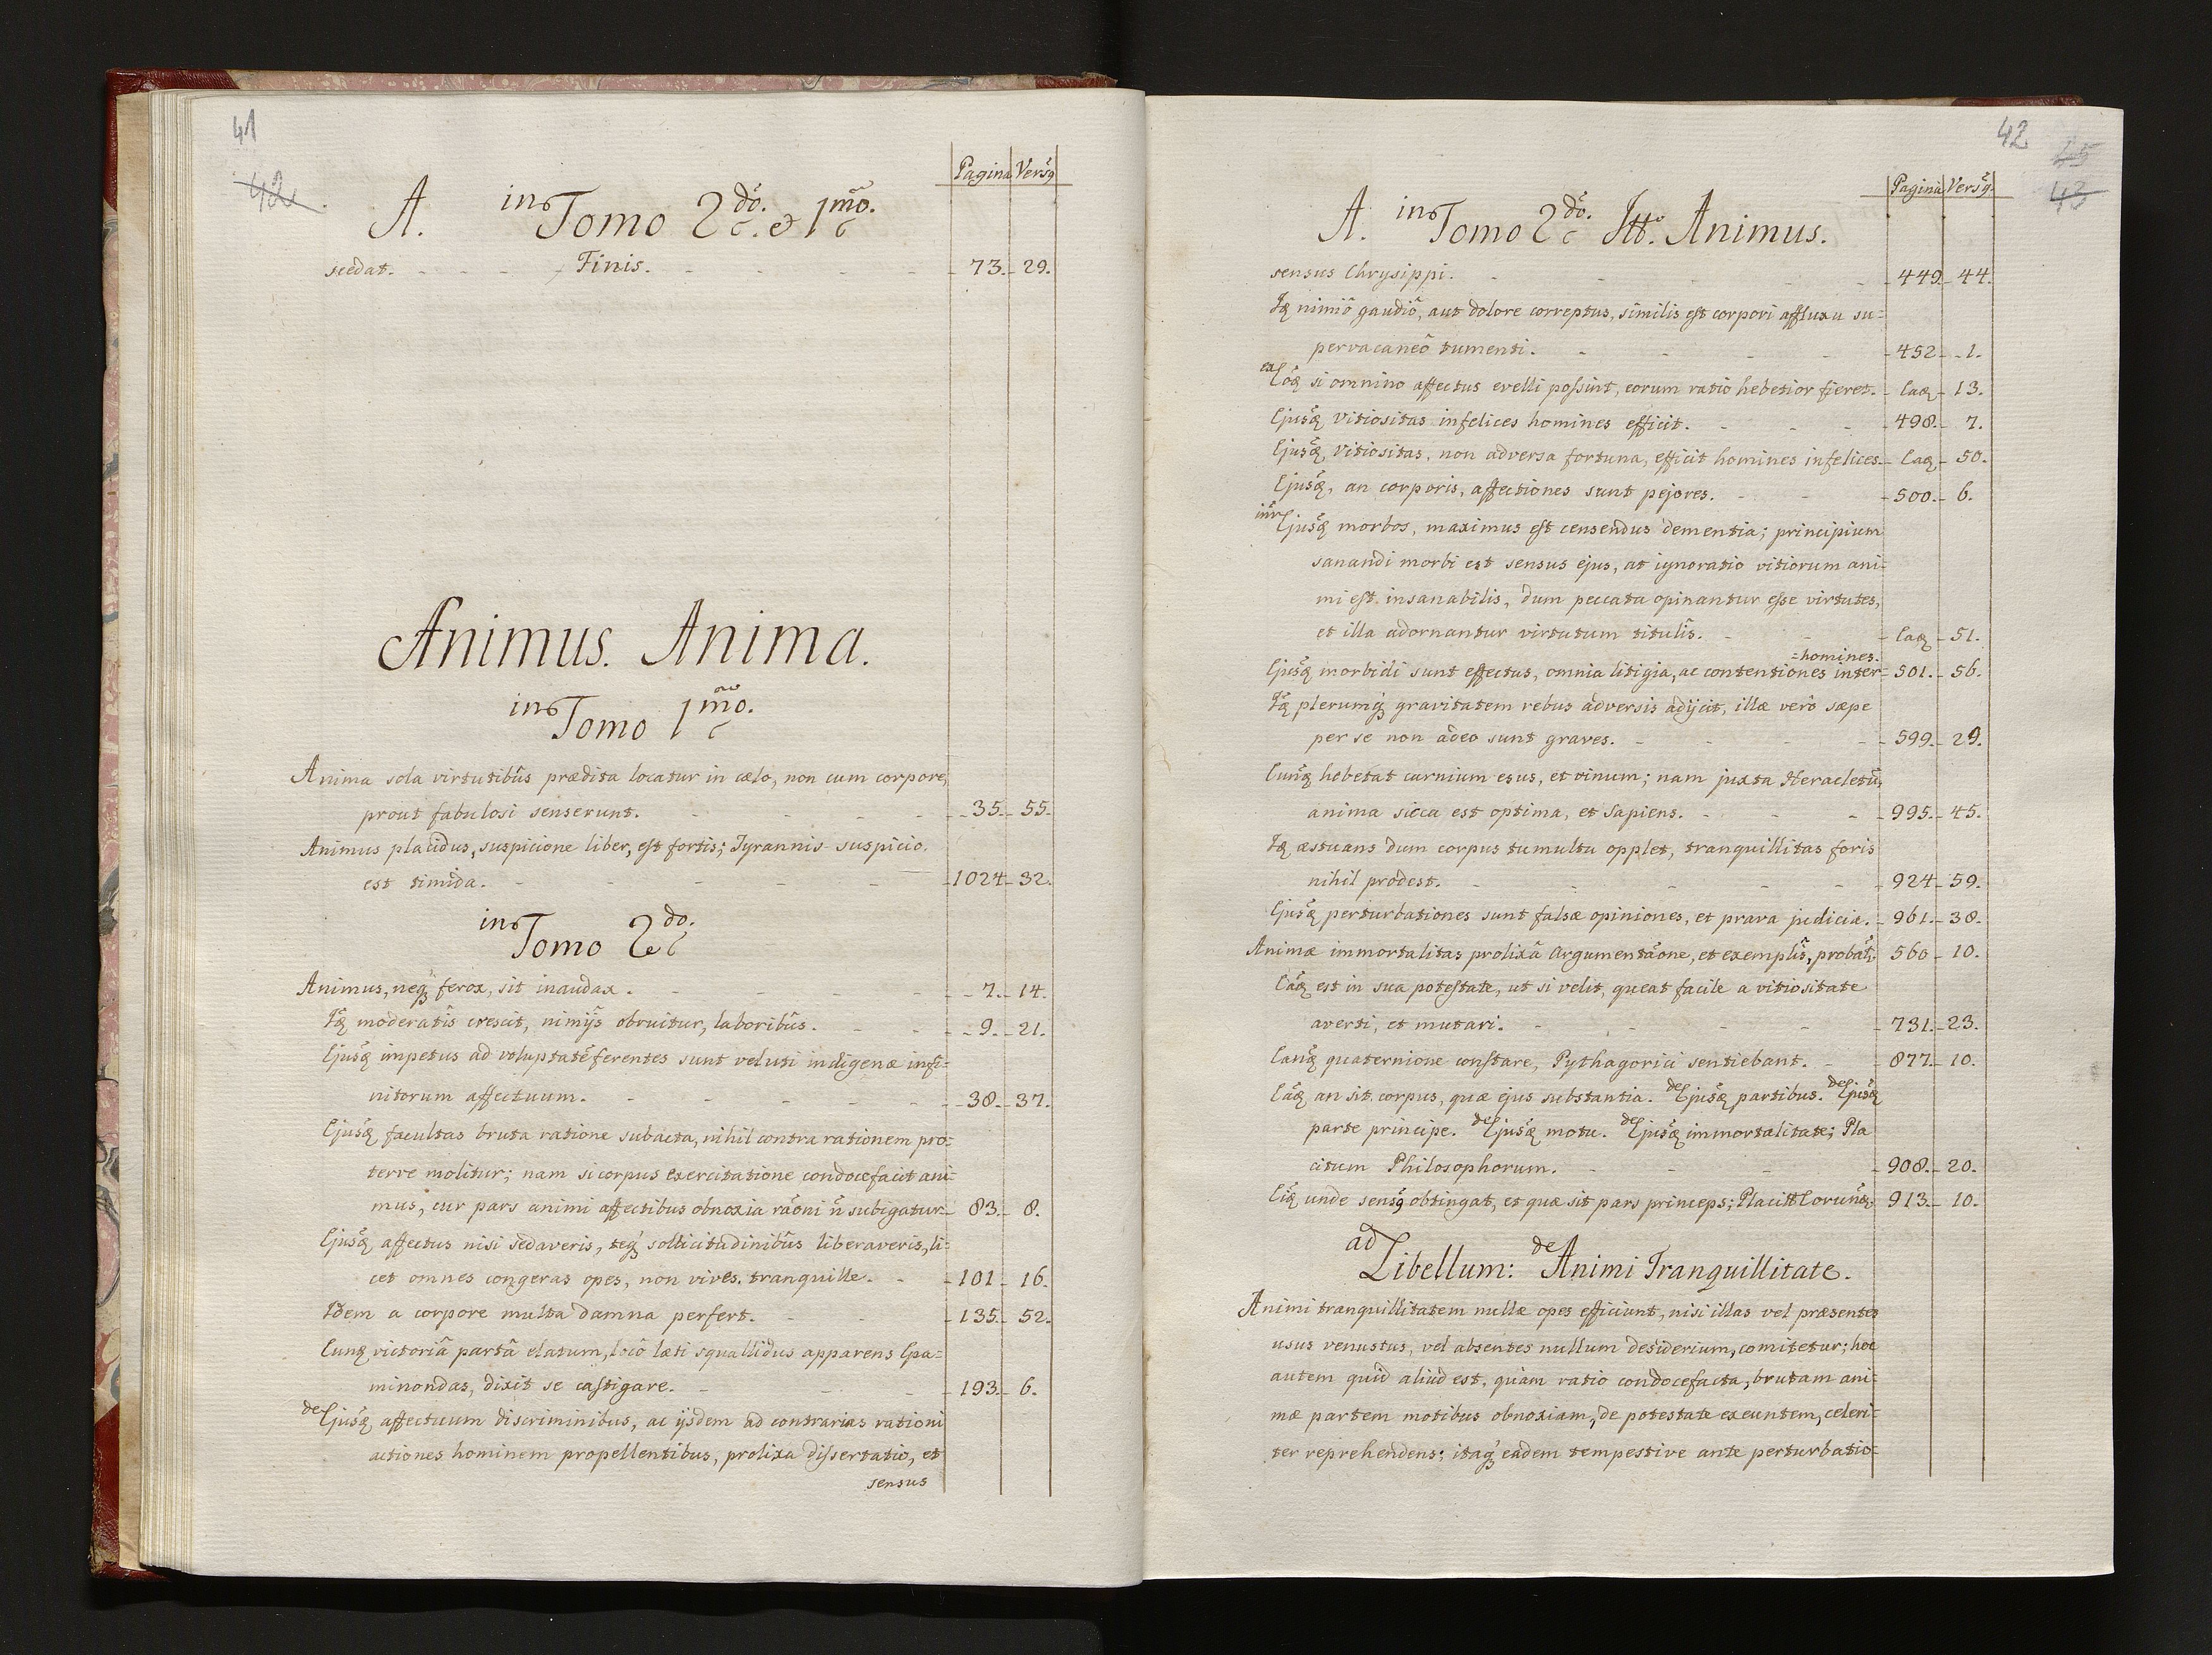 41
42
Pagina Versꝯ
A. in Tomo 2do. & 1mo.
scedat. Finis. 73. 29.
Animus. Anima.
in Tomo 1mo.
Anima sola virtutibûs prædita locatur in cælo, non cum corpore,
prout fabulosi senserunt. 35. 55.
Animus placidus, suspicione liber, est fortis; Tyrannis suspicio.
est timida. 1024. 32.
in Tomo 2do.
Animus, neqꝫ ferox, sit inaudax. 7. 14.
Idꝫ moderatîs crescit, nimijs obruitur, laboribûs. 9. 21.
Ejusdꝫ impetus ad voluptatē ferentes sunt veluti indigenæ infi=
nitorum affectuum. 38. 37.
Ejusdꝫ facultas bruta ratione subacta, nihil contra rationem pro=
terve molitur; nam si corpus exercitatione condocefacit ani=
mus, cur pars animi affectibus obnoxia rãoni ñ subigatur. 83. 8.
Ejusdꝫ affectus nisi sedaveris, teqꝫ sollicitudinibûs liberaveris, li=
cet omnes congeras opes, non vives tranquille. 101. 16.
Idem a corpore multa damna perfert. 135. 52.
Eundꝫ victoriâ partâ elatum, locô læti squallidus apparens Epa=
minondas, dixit se castigare. 193. 6.
de Ejusdꝫ affectuum discriminibus, ac ijsdem ad contrarias rationi
actiones hominem propellentibus, prolixa dissertatio, et
sensus
42
45
43
Pagina Versꝯ
A. in Tomo 2do. Itt. Animus.
sensus Chrysippi. 449. 44.
Idꝫ nimiô gaudiô, aut dolore correptus, similis est corpori affluxu su=
pervacaneô tumenti. 452. 1.
ex Eodꝫ si omnino affectus evelli possint, eorum ratio hebetior fieret. Eadꝫ 13.
Ejusdꝫ vitiositas infelices homines efficit. 498. 7.
Ejusdꝫ vitiositas, non adversa fortuna, efficit homines infelices. Eadꝫ 50.
Ejusdꝫ, an corporis, affectiones sunt pejores. 500. 6.
intr Ejusdꝫ morbos, maximus est censendus dementia; principium
sanandi morbi est sensus ejus, at ignoratio vitiorum ani=
mi est insanabilis, dum peccata opinantur esse virtutes,
et illa adornantur virtutum titulîs. Eadꝫ 51.
=homines.
Ejusdꝫ morbidi sunt effectus, omnia litigia, ac contentiones inter= 501. 56.
Idꝫ plerumqꝫ gravitatem rebus adversis adijcit, illæ verô sæpe
per se non adeo sunt graves. 599. 29.
Eundꝫ hebetat carnium esus, et vinum; nam juxta Heracletū,
anima sicca est optima, et Sapiens. 995. 45.
Idꝫ æstuans dum corpus tumultu opplet, tranquillitas foris
nihil prodest. 924. 59.
Ejusdꝫ perturbationes sunt falsæ opiniones, et prava judicia. 961. 38.
Animæ immortalitas prolixâ Argumentãone, et exemplîs, probat̃. 560. 10.
Eadꝫ est in sua potestate, ut si velit, queat facile a vitiositate
averti, et mutari. 731. 23.
Eandꝫ quaternione constare, Pythagorici sentiebant. 877. 10.
Eadꝫ an sit corpus, quæ ejus substantia. de Ejusdꝫ partibus. de Ejusdꝫ
parte principe. de Ejusdꝫ motu. de Ejusdꝫ immortalitate; Pla
citum Philosophorum. 908. 20.
Eidꝫ unde sensꝯ obtingat, et quæ sit pars princeps; Placitt Eorundꝫ. 913. 10.
ad Libellum: de Animi Tranquillitate.
Animi tranquillitatem nullæ opes efficiunt, nisi illas vel præsentes
usus venustus, vel absentes nullum desiderium, comitetur; hoc
autem quid aliud est, quàm ratio condocefacta, brutam ani=
mæ partem motibus obnoxiam, de potestate exeuntem, celeri=
ter reprehendens; itaqꝫ eadem tempestive ante perturbatio=